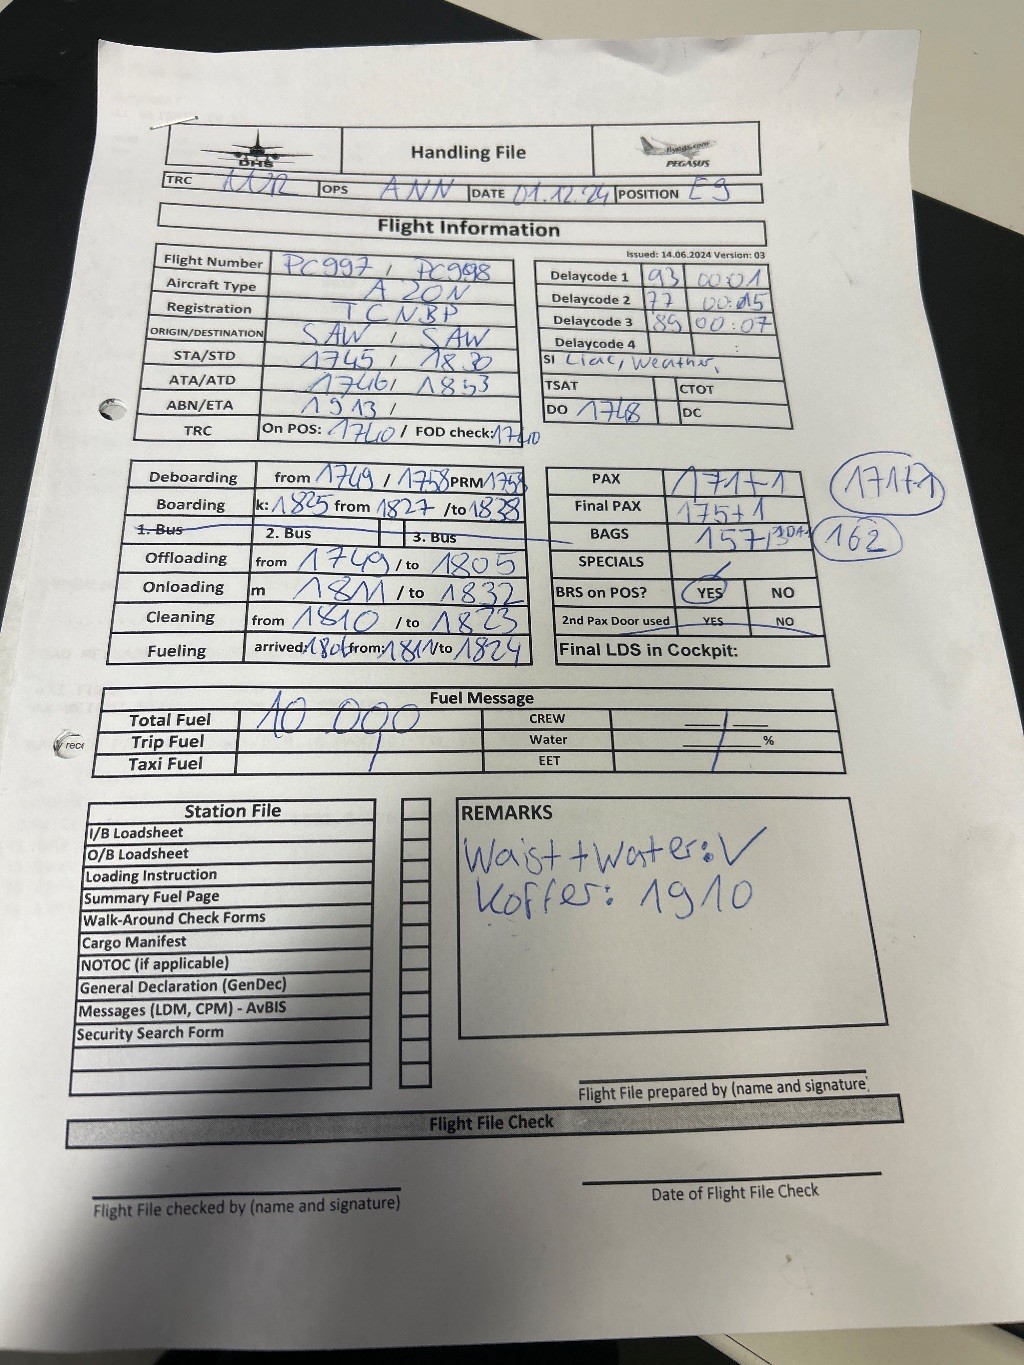 DHS
Handling File
flypgs.com
PEGASUS
TRC OPS ANN DATE 01.12.24 POSITION E9
Flight Information
Issued: 14.06.2024 Version: 03
Flight Number PC997 / PC998
Aircraft Type A20N
Registration TCNBP
ORIGIN/DESTINATION SAW / SAW
STA/STD 1745 / 1830
ATA/ATD 1746 / 1853
ABN/ETA 1913 /
TRC On POS: 1740 / FOD check: 1740
Delaycode 1 93 00:01
Delaycode 2 77 00:15
Delaycode 3 89 00:07
Delaycode 4 :
SI Liac, Weather,
TSAT CTOT
DO 1748 DC
Deboarding from 1749 / 1758 PRM 1758
Boarding k: 1825 from 1827 /to 1838
1. Bus 2. Bus 3. Bus
Offloading from 1749 / to 1805
Onloading m 1811 / to 1832
Cleaning from 1810 / to 1823
Fueling arrived: 1806 from: 1811 /to 1824
PAX 171+1 171+1
Final PAX 175+1
BAGS 157 162
SPECIALS
BRS on POS? YES NO
2nd Pax Door used YES NO
Final LDS in Cockpit:
Fuel Message
Total Fuel 10 000 CREW /
Trip Fuel Water %
Taxi Fuel EET
Station File
I/B Loadsheet
O/B Loadsheet
Loading Instruction
Summary Fuel Page
Walk-Around Check Forms
Cargo Manifest
NOTOC (if applicable)
General Declaration (GenDec)
Messages (LDM, CPM) - AvBIS
Security Search Form
REMARKS
Waist + Water: ✓
Koffer: 1910
Flight File prepared by (name and signature)
Flight File Check
Flight File checked by (name and signature)
Date of Flight File Check